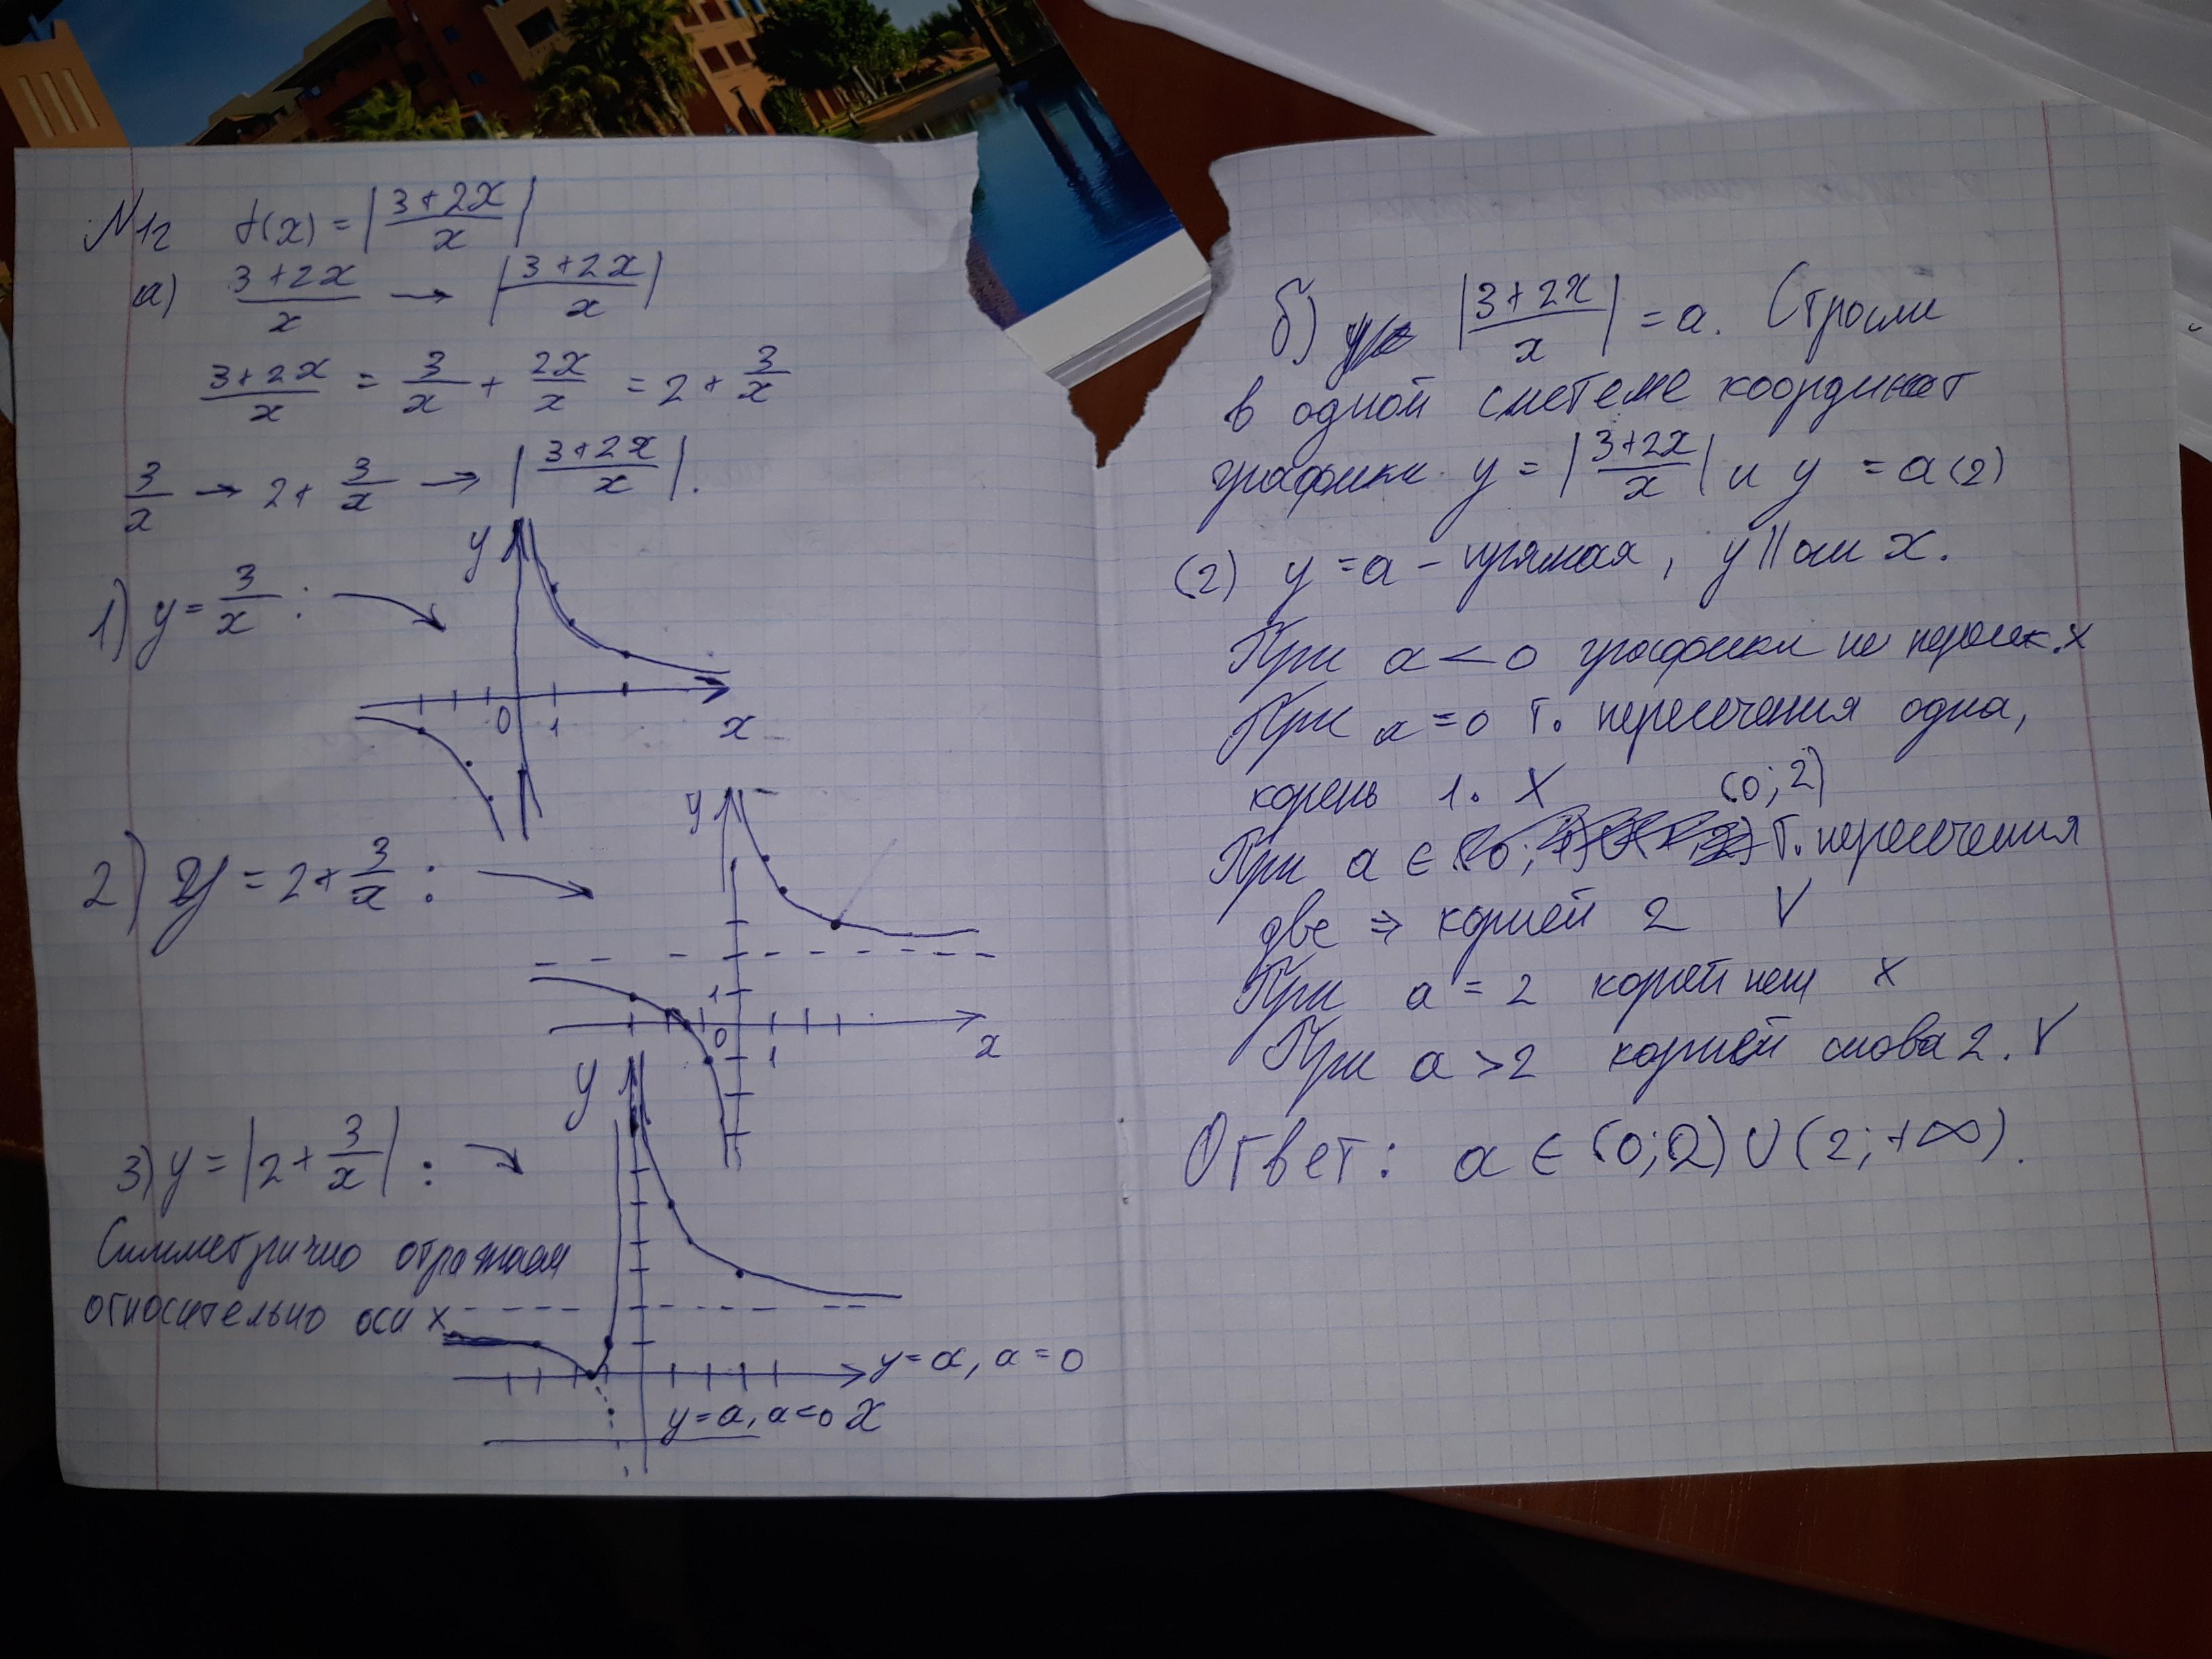 №12 f(x) = |(3+2x)/x|
а) (3+2x)/x → |(3+2x)/x|
(3+2x)/x = 3/x + 2x/x = 2 + 3/x
3/x → 2 + 3/x → |(3+2x)/x|.
1) y = 3/x :
y
0 1
x
2) y = 2 + 3/x :
y
1
0 1
x
3) y = |2 + 3/x| :
y
Симметрично отражаем
относительно оси x
y = a, a = 0
y = a, a < 0 x
б) |(3+2x)/x| = a. Строим
в одной системе координат
графики y = |(3+2x)/x| и y = a (2)
(2) y = a – прямая, y || оси x.
При a < 0 графики не пересек. x
При a = 0 т. пересечения одна,
корень 1. x
(0; 2)
При a ∈ т. пересечения
две ⇒ корней 2 V
При a = 2 корней нет x
При a > 2 корней снова 2. V
Ответ: a ∈ (0; 2) ∪ (2; +∞).